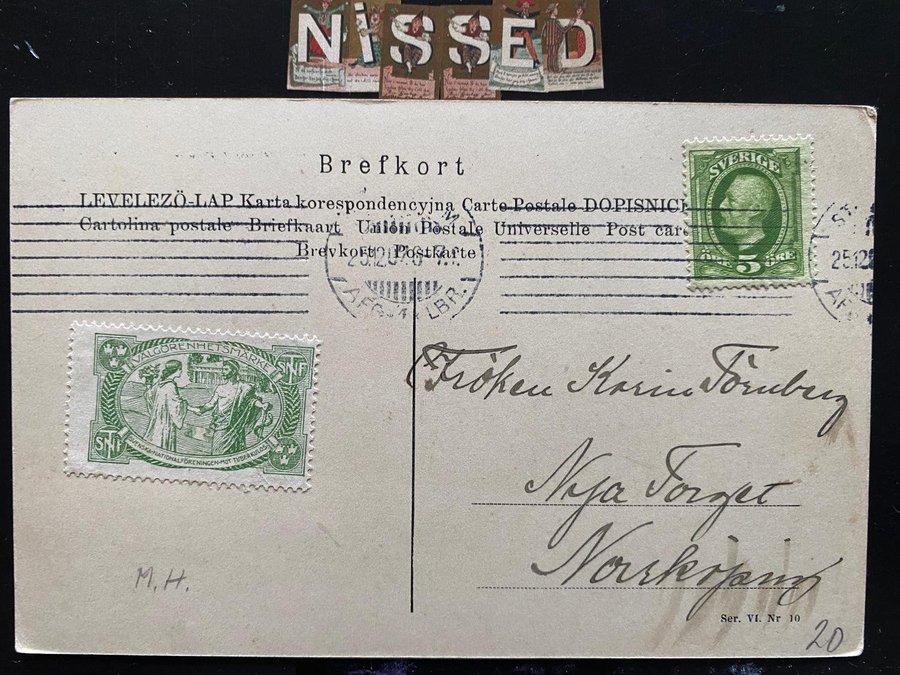 NiSSED
Brefkort
LEVELEZÖ-LAP Karta korespondencyjna Carte Postale DOPISNICE
Cartolina postale Briefkaart Union Postale Universelle Post card
Brevkort Postkarte
SVERIGE
5
ÖRE ÖRE
AFG. 4 LBR.
VÄLGÖRENHETSMÄRKE
SNF
SNF
SVENSKA NATIONALFÖRENINGEN MOT TUBERKULOS
Fröken Karin Törnberg
Nya Torget
Norrköping
M.H.
Ser. VI. Nr 10
20